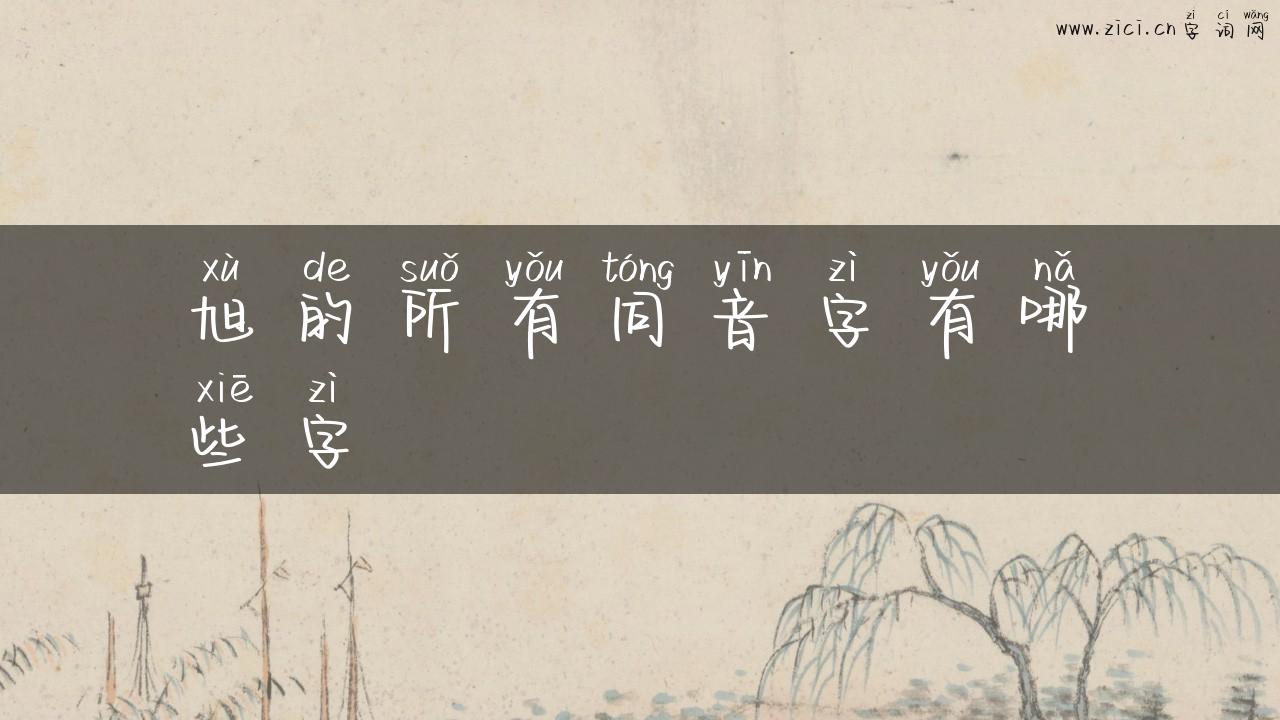 zì cí wǎng
www.zici.cn 字 词 网
xù de suǒ yǒu tóng yīn zì yǒu nǎ
旭 的 所 有 同 音 字 有 哪
xiē zì
些 字